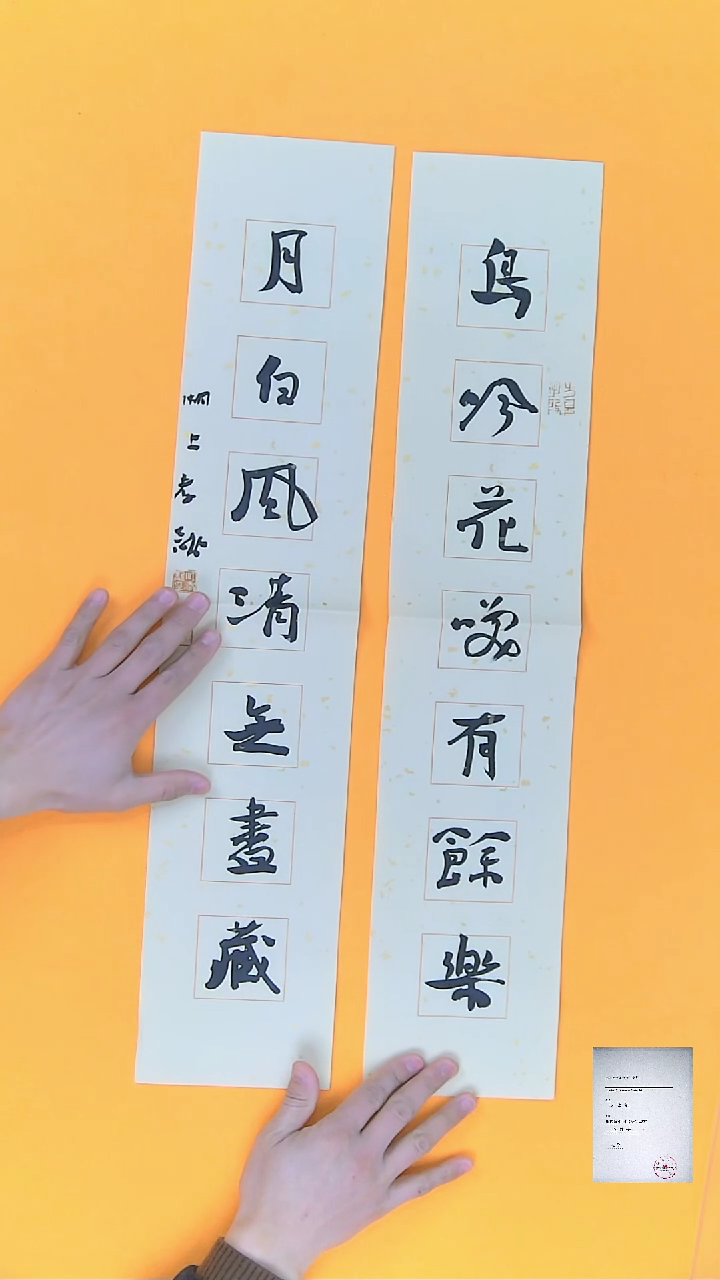 鳥吟花咲有餘樂
月白風清無盡藏